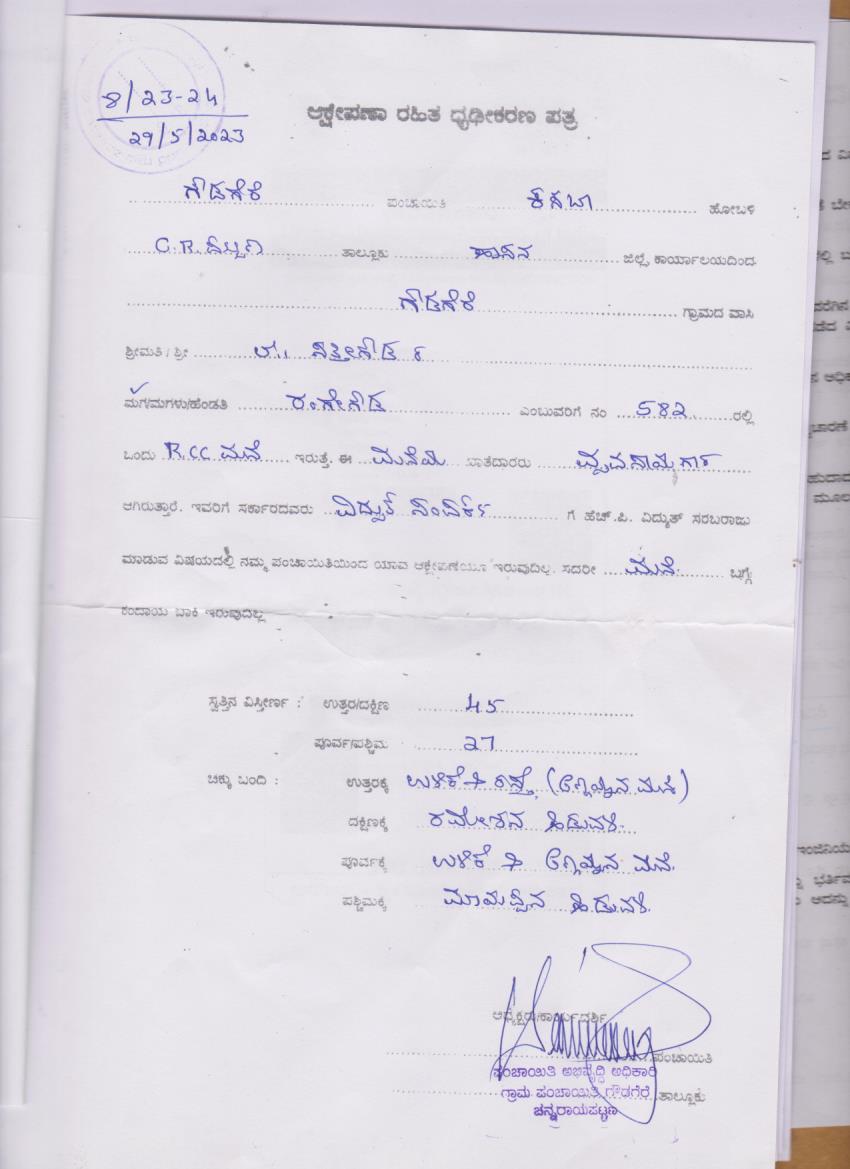 8/23-24
29/5/2023
ಆಕ್ಷೇಪಣಾ ರಹಿತ ಧೃಢೀಕರಣ ಪತ್ರ
ಗೌಡಗೆರೆ ಪಂಚಾಯಿತಿ ಕಸಬಾ ಹೋಬಳಿ
C.R.ಪಟ್ಟಣ ತಾಲ್ಲೂಕು ಹಾಸನ ಜಿಲ್ಲೆ, ಕಾರ್ಯಾಲಯದಿಂದ
ಗೌಡಗೆರೆ ಗ್ರಾಮದ ವಾಸಿ
ಶ್ರೀಮತಿ / ಶ್ರೀ
ಮಗ/ಮಗಳು/ಹೆಂಡತಿ ರಂಗೇಗೌಡ ಎಂಬುವರಿಗೆ ನಂ 582 ರಲ್ಲಿ
ಒಂದು RCC ಮನೆ ಇರುತ್ತೆ. ಈ ಮನೆಯ ಖಾತೆದಾರರು
ಆಗಿರುತ್ತಾರೆ. ಇವರಿಗೆ ಸರ್ಕಾರದವರು ವಿದ್ಯುತ್ ಸಂಪರ್ಕ ಗೆ ಹೆಚ್.ಪಿ. ವಿದ್ಯುತ್ ಸರಬರಾಜು
ಮಾಡುವ ವಿಷಯದಲ್ಲಿ ನಮ್ಮ ಪಂಚಾಯಿತಿಯಿಂದ ಯಾವ ಆಕ್ಷೇಪಣೆಯೂ ಇರುವುದಿಲ್ಲ. ಸದರೀ ಮನೆ. ಬಗ್ಗೆ
ಕಂದಾಯ ಬಾಕಿ ಇರುವುದಿಲ್ಲ
ಸ್ವತ್ತಿನ ವಿಸ್ತೀರ್ಣ : ಉತ್ತರ/ದಕ್ಷಿಣ 45
ಪೂರ್ವ/ಪಶ್ಚಿಮ 27
ಚಕ್ಕು ಬಂದಿ : ಉತ್ತರಕ್ಕೆ ಉಳಿಕೆ + ರಸ್ತೆ
ದಕ್ಷಿಣಕ್ಕೆ ರಮೇಶನ ಹಿಡುವಳಿ.
ಪೂರ್ವಕ್ಕೆ ಉಳಿಕೆ + ಮನೆ.
ಪಶ್ಚಿಮಕ್ಕೆ ಹಿಡುವಳಿ.
ಅಧ್ಯಕ್ಷರು/ಕಾರ್ಯದರ್ಶಿ
ಪಂಚಾಯಿತಿ
ಪಂಚಾಯಿತಿ ಅಭಿವೃದ್ಧಿ ಅಧಿಕಾರಿ
ಗ್ರಾಮ ಪಂಚಾಯಿತಿ ಗೌಡಗೆರೆ ತಾಲ್ಲೂಕು
ಚನ್ನರಾಯಪಟ್ಟಣ